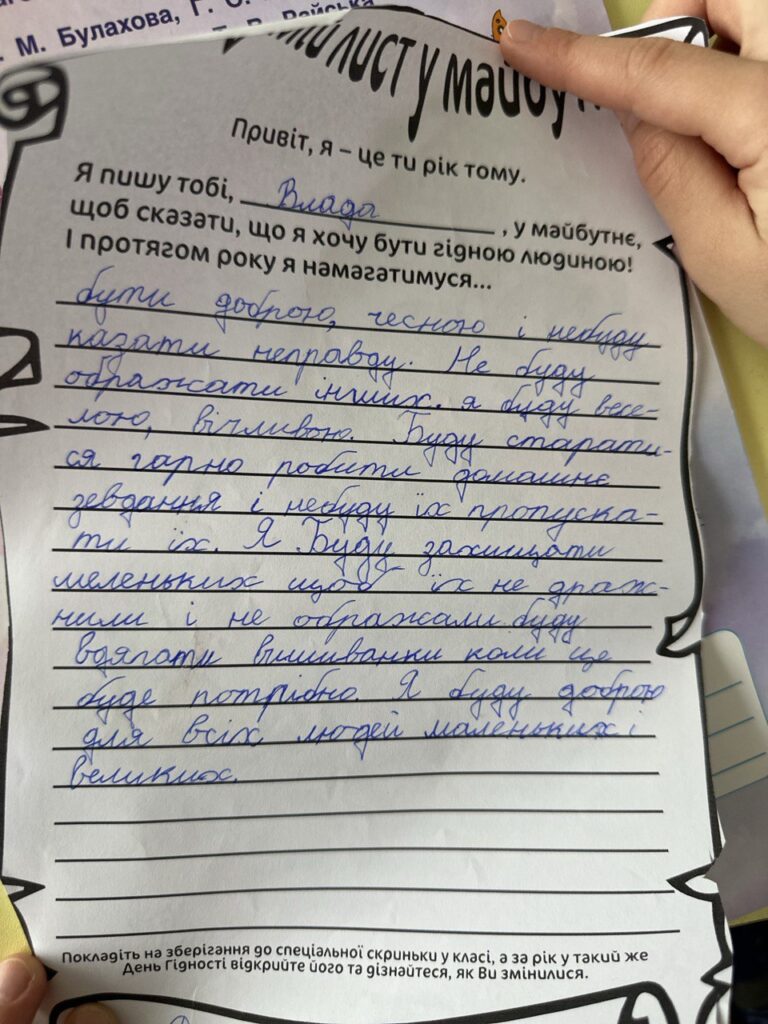 М. Булахова, Г.
Т. В. Райська
лист у майбут
Привіт, я – це ти рік тому.
Я пишу тобі, Влада, у майбутнє,
щоб сказати, що я хочу бути гідною людиною!
І протягом року я намагатимуся...
бути доброю, чесною і небуду
казати неправду. Не буду
ображати інших. я буду весе-
лою, вічливою. Буду старати-
ся гарно робити домашнє
зевдання і небуду їх пропуска-
ти їх. Я Буду захищати
меленьких щоб їх не драж-
нили і не ображали. буду
вдягати вишиванки коли це
буде потрібно. Я буду доброю
для всіх людей маленьких і
великих.
Покладіть на зберігання до спеціальної скриньки у класі, а за рік у такий же
День Гідності відкрийте його та дізнайтеся, як Ви змінилися.